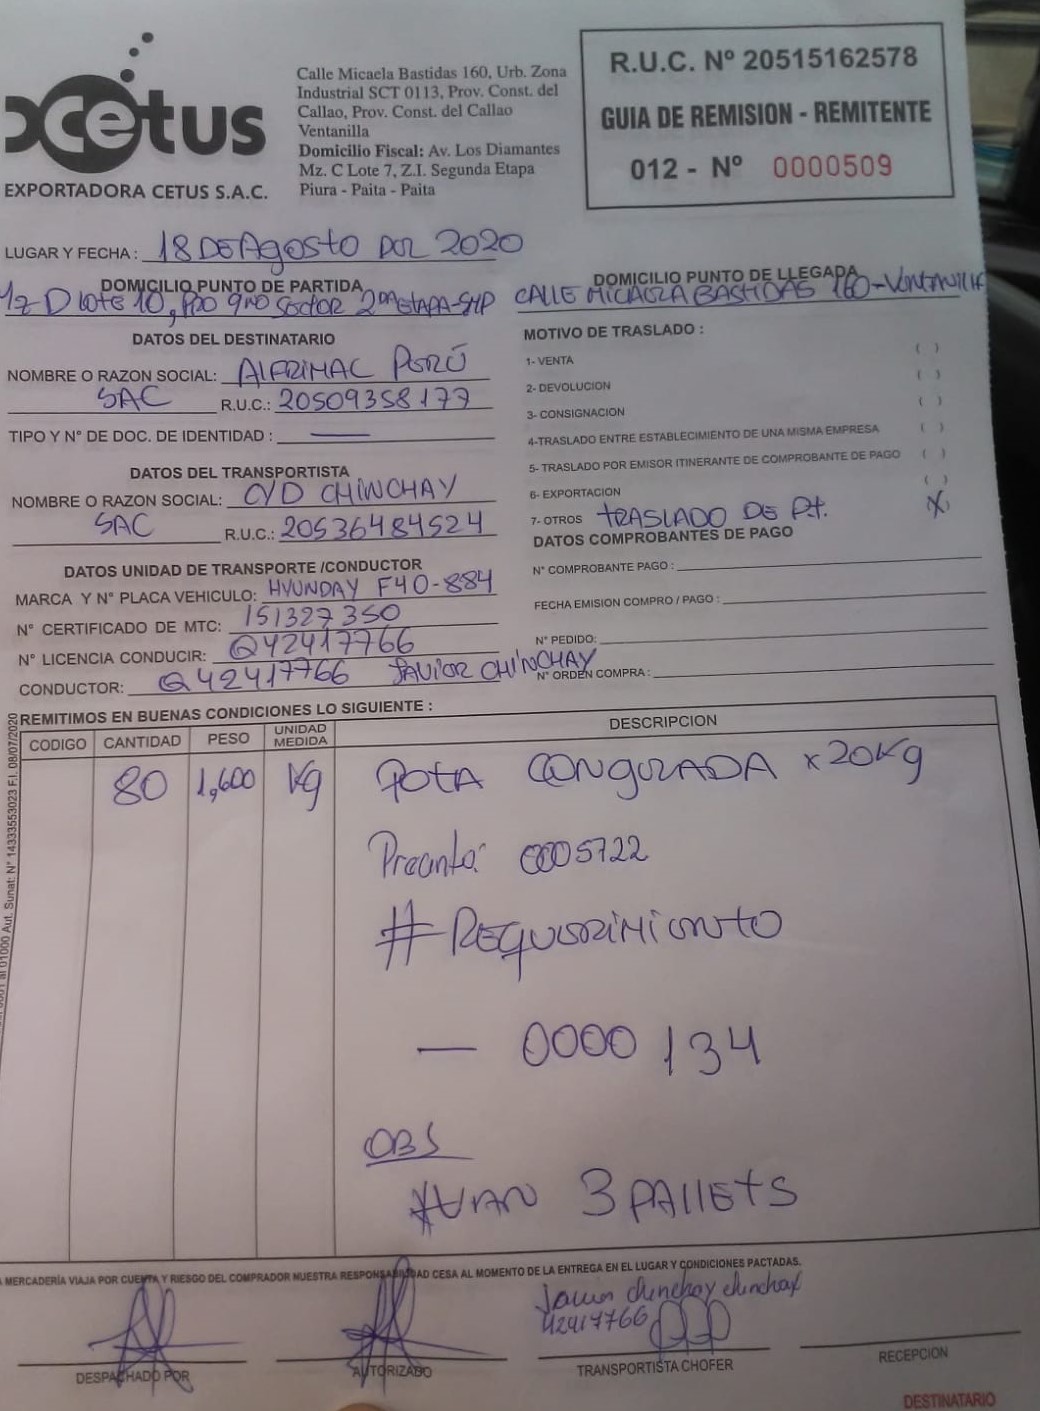 cetus
EXPORTADORA CETUS S.A.C.
Calle Micaela Bastidas 160, Urb. Zona
Industrial SCT 0113, Prov. Const. del
Callao, Prov. Const. del Callao
Ventanilla
Domicilio Fiscal: Av. Los Diamantes
Mz. C Lote 7, Z.I. Segunda Etapa
Piura - Paita - Paita
R.U.C. Nº 20515162578
GUIA DE REMISION - REMITENTE
012 - Nº 0000509
LUGAR Y FECHA : 18 DE Agosto DEL 2020
DOMICILIO PUNTO DE PARTIDA
Mz D Lote 10, PRO 9no Sector 2da ETAPA-SMP
DOMICILIO PUNTO DE LLEGADA
CALLE MICAELA BASTIDAS 160-Ventanilla
DATOS DEL DESTINATARIO
NOMBRE O RAZON SOCIAL: ALFRIMAC PERÚ
SAC R.U.C.: 20509358177
TIPO Y Nº DE DOC. DE IDENTIDAD : —
DATOS DEL TRANSPORTISTA
NOMBRE O RAZON SOCIAL: C/D CHINCHAY
SAC R.U.C.: 20536484524
DATOS UNIDAD DE TRANSPORTE /CONDUCTOR
MARCA Y Nº PLACA VEHICULO: HYUNDAY F40-884
Nº CERTIFICADO DE MTC: 151327350
Nº LICENCIA CONDUCIR: Q42417766
CONDUCTOR: Q42417766 JAVIER CHINCHAY
MOTIVO DE TRASLADO :
1- VENTA ( )
2- DEVOLUCION ( )
3- CONSIGNACION ( )
4-TRASLADO ENTRE ESTABLECIMIENTO DE UNA MISMA EMPRESA ( )
5- TRASLADO POR EMISOR ITINERANTE DE COMPROBANTE DE PAGO ( )
6- EXPORTACION ( )
7- OTROS TRASLADO DE P.t. (X)
DATOS COMPROBANTES DE PAGO
Nº COMPROBANTE PAGO :
FECHA EMISION COMPRO / PAGO :
Nº PEDIDO:
Nº ORDEN COMPRA :
REMITIMOS EN BUENAS CONDICIONES LO SIGUIENTE :
CODIGO CANTIDAD PESO UNIDAD MEDIDA DESCRIPCION
80 1,600 Kg POTA CONGELADA x 20Kg
Precinto: 0005722
# REQUERIMIENTO
— 0000134
OBS
*VAN 3 PALLETS
01000 Aut. Sunat: Nº 14333553023 F.I. 08/07/2020
MERCADERÍA VIAJA POR CUENTA Y RIESGO DEL COMPRADOR NUESTRA RESPONSABILIDAD CESA AL MOMENTO DE LA ENTREGA EN EL LUGAR Y CONDICIONES PACTADAS.
Javier chinchay chinchay
42417766
DESPACHADO POR
AUTORIZADO
TRANSPORTISTA CHOFER
RECEPCION
DESTINATARIO